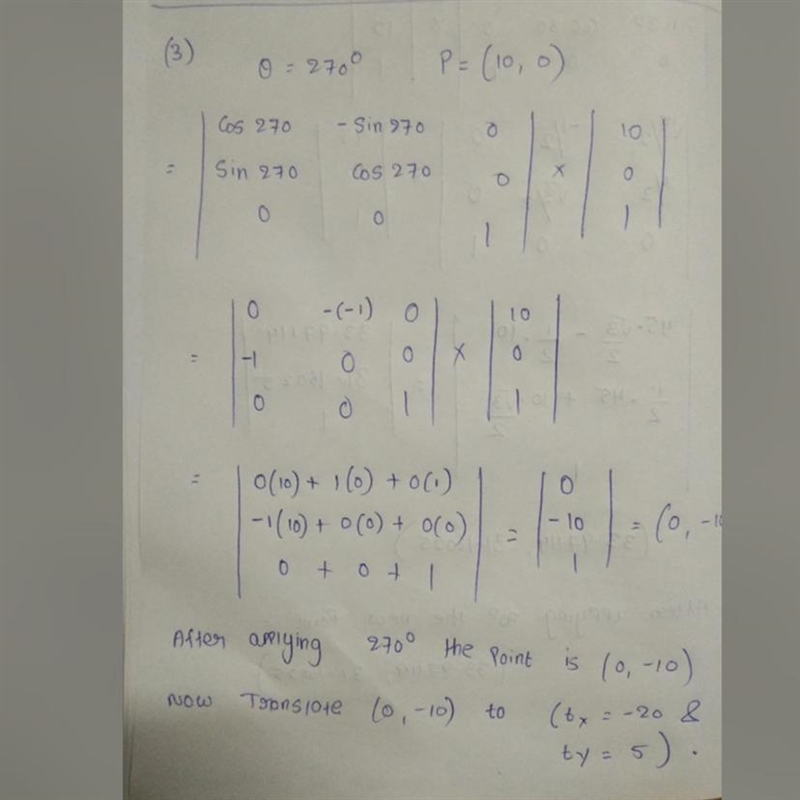 (3) θ = 270⁰ P = (10, 0)
= | Cos 270 - Sin 270 0 | × | 10 |
| Sin 270 Cos 270 0 | | 0 |
| 0 0 1 | | 1 |
= | 0 -(-1) 0 | × | 10 |
| -1 0 0 | | 0 |
| 0 0 1 | | 1 |
= | 0(10) + 1(0) + 0(1) | = | 0 | = (0, -10
| -1(10) + 0(0) + 0(0) | | -10 |
| 0 + 0 + 1 | | 1 |
After applying 270⁰ the point is (0, -10)
Now Translate (0, -10) to (tx = -20 &
ty = 5) .